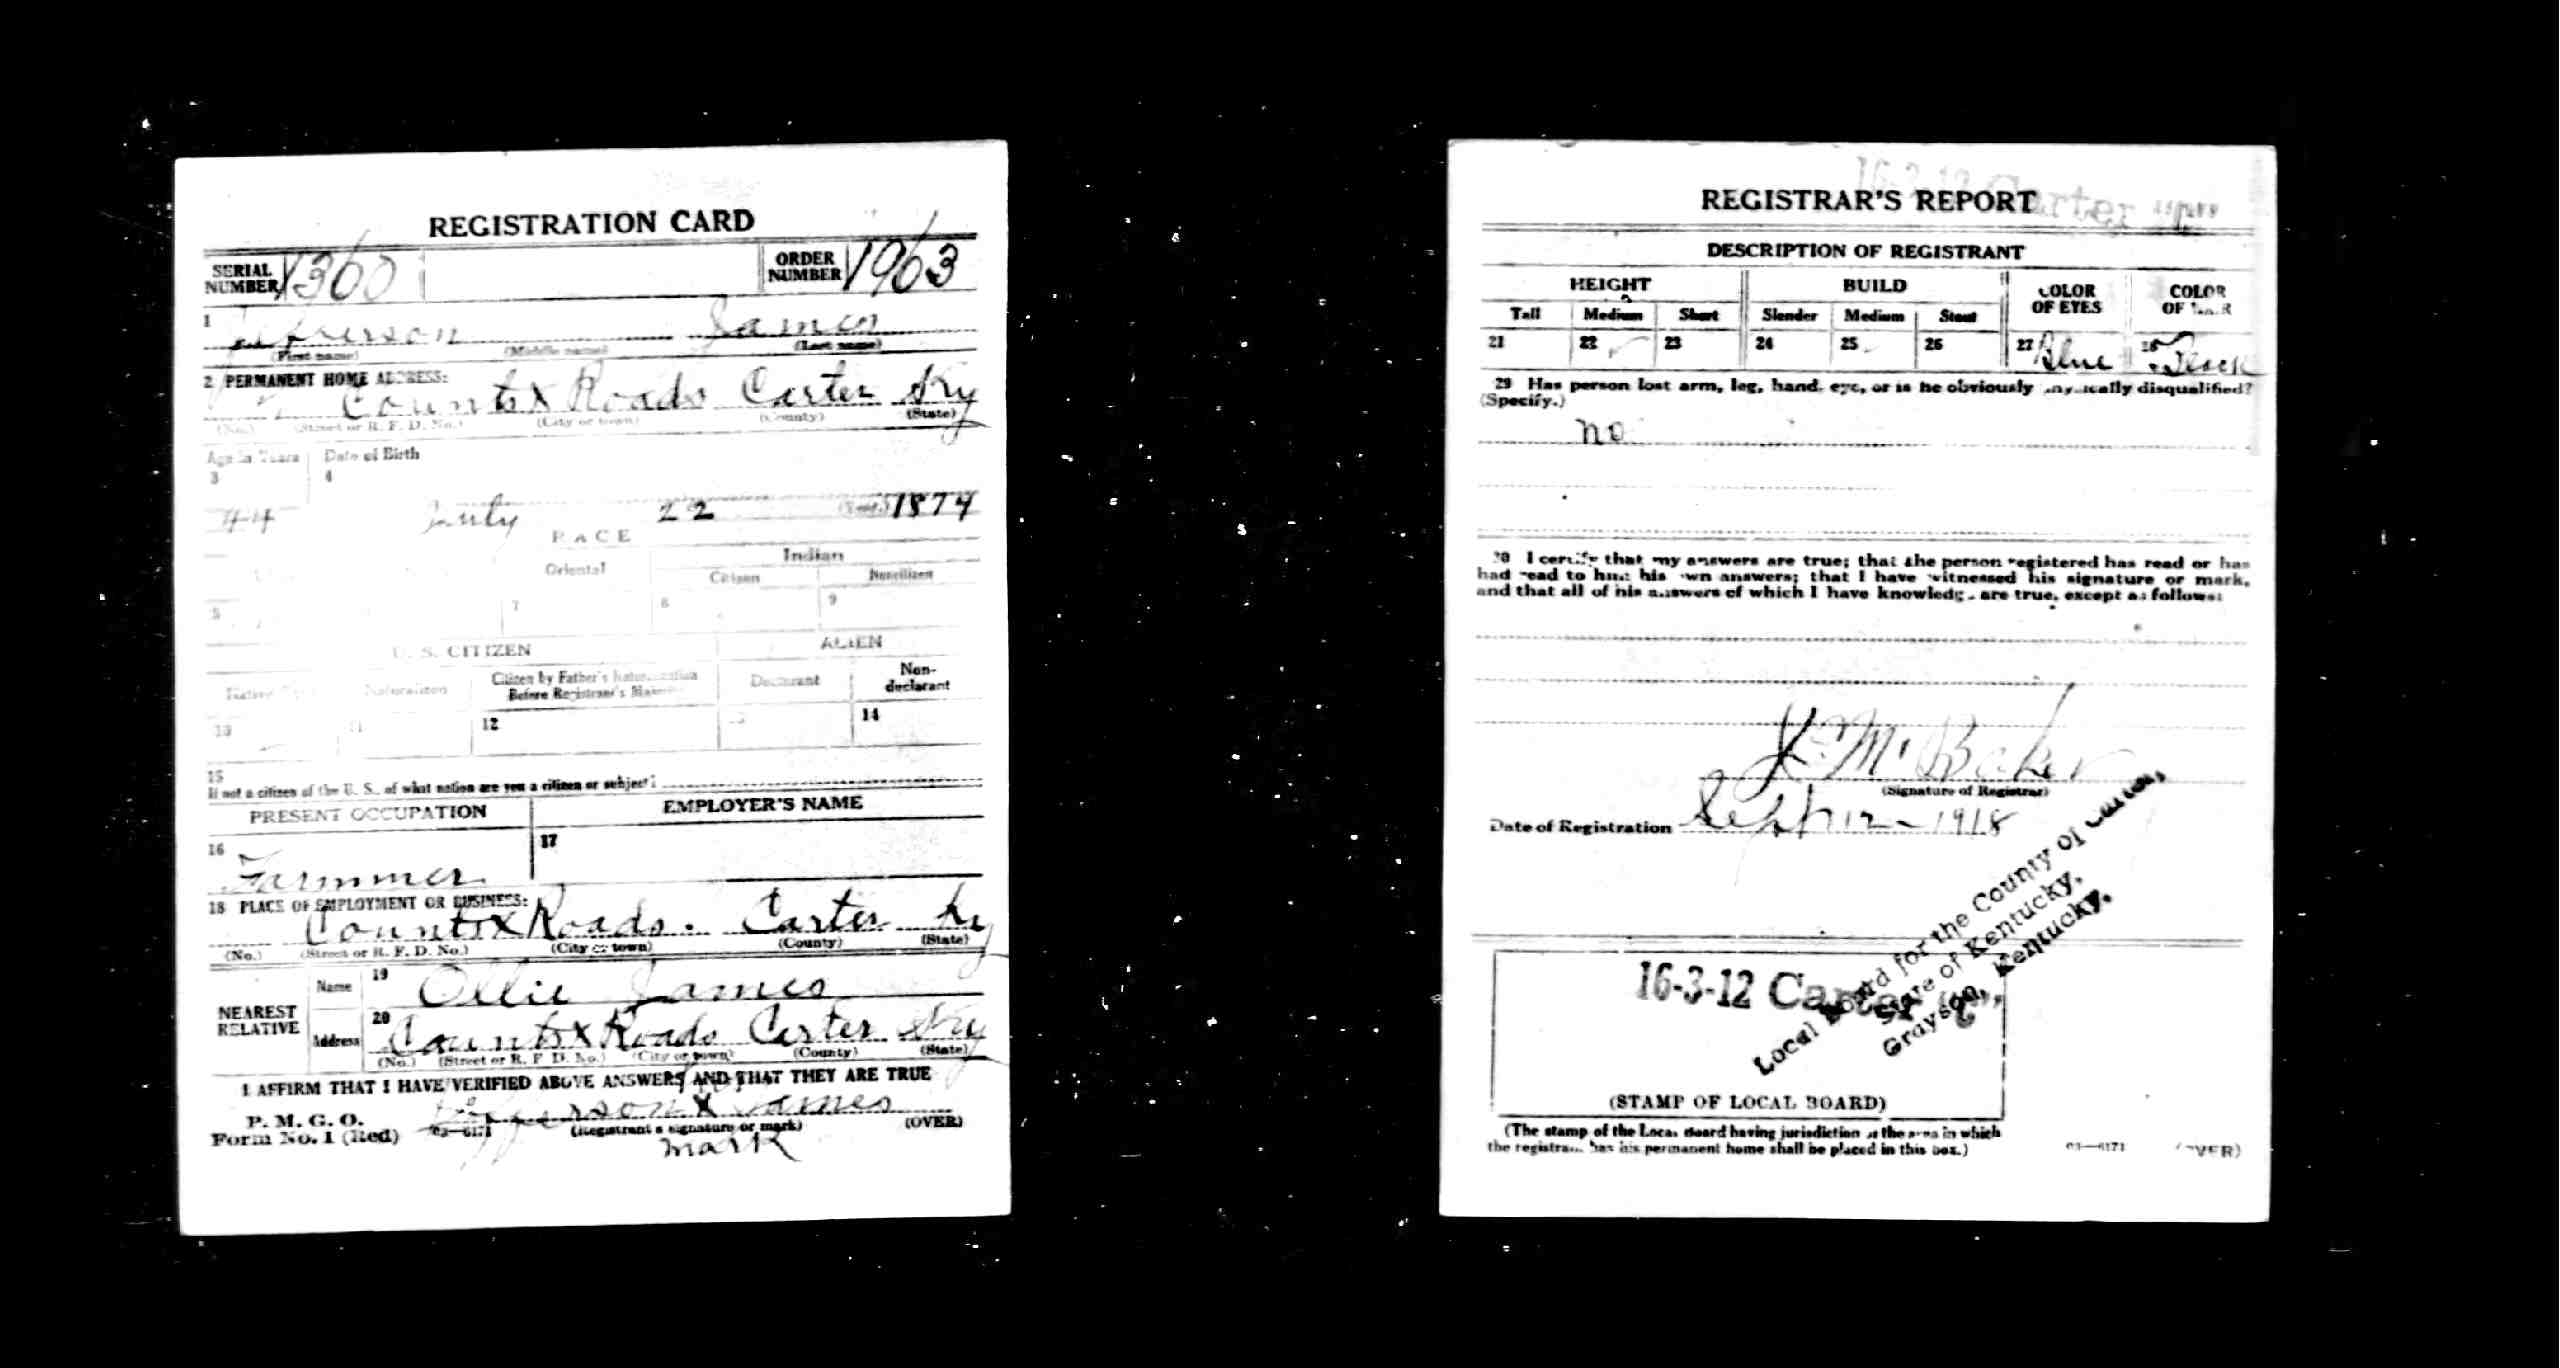 REGISTRATION CARD
SERIAL NUMBER 1360 ORDER NUMBER 1963
1 Jefferson James
(First name) (Middle name) (Last name)
2 PERMANENT HOME ADDRESS:
Counts X Roads Carter Ky
(No.) (Street or R. F. D. No.) (City or town) (County) (State)
Age in Years Date of Birth
3 4
44 July 22 1874
RACE
Indian
Oriental Citizen Noncitizen
5 7 8 9
U. S. CITIZEN ALIEN
Citizen by Father's Naturalization Before Registrant's Majority Declarant Non-declarant
10 11 12 13 14
15
If not a citizen of the U. S., of what nation are you a citizen or subject?
PRESENT OCCUPATION EMPLOYER'S NAME
16 17
Farmmer
18 PLACE OF EMPLOYMENT OR BUSINESS:
Counts X Roads. Carter Ky
(No.) (Street or R. F. D. No.) (City or town) (County) (State)
NEAREST RELATIVE
Name 19 Ollie James
Address 20 Counts X Roads Carter Ky
(No.) (Street or R. F. D. No.) (City or town) (County) (State)
I AFFIRM THAT I HAVE VERIFIED ABOVE ANSWERS AND THAT THEY ARE TRUE
P. M. G. O.
Form No. 1 (Red) 03—6171 Jefferson X James (OVER)
(Registrant's signature or mark)
mark
REGISTRAR'S REPORT
DESCRIPTION OF REGISTRANT
HEIGHT BUILD COLOR OF EYES COLOR OF HAIR
Tall Medium Short Slender Medium Stout
21 22 23 24 25 26 27 Blue 28 Black
29 Has person lost arm, leg, hand, eye, or is he obviously physically disqualified?
(Specify.)
no
30 I certify that my answers are true; that the person registered has read or has
had read to him his own answers; that I have witnessed his signature or mark,
and that all of his answers of which I have knowledge are true, except as follows:
M. Baker
(Signature of Registrar)
Date of Registration Sept 12-1918
Local Board for the County of Carter,
State of Kentucky,
Grayson, Kentucky.
16-3-12 Carter
(STAMP OF LOCAL BOARD)
(The stamp of the Local Board having jurisdiction of the area in which
the registrant has his permanent home shall be placed in this box.)
03—6171 (OVER)